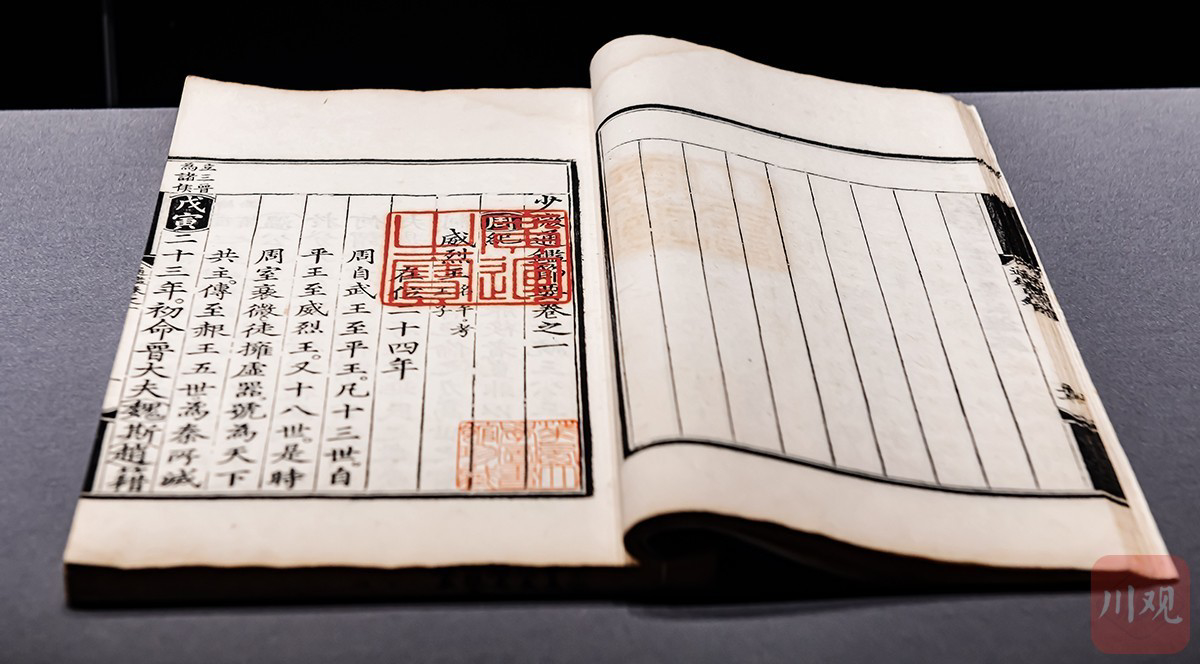 少微通鑑節要卷之一
周紀
威烈王名午考王子
在位二十四年
周自武王至平王。凡十三世。自
平王至威烈王。又十八世。是時
周室衰微。徒擁虛器。號為天下
共主。傳至赧王五世為秦所滅
立三晉
為諸侯
戊寅二十三年。初命晉大夫魏斯趙籍
川观